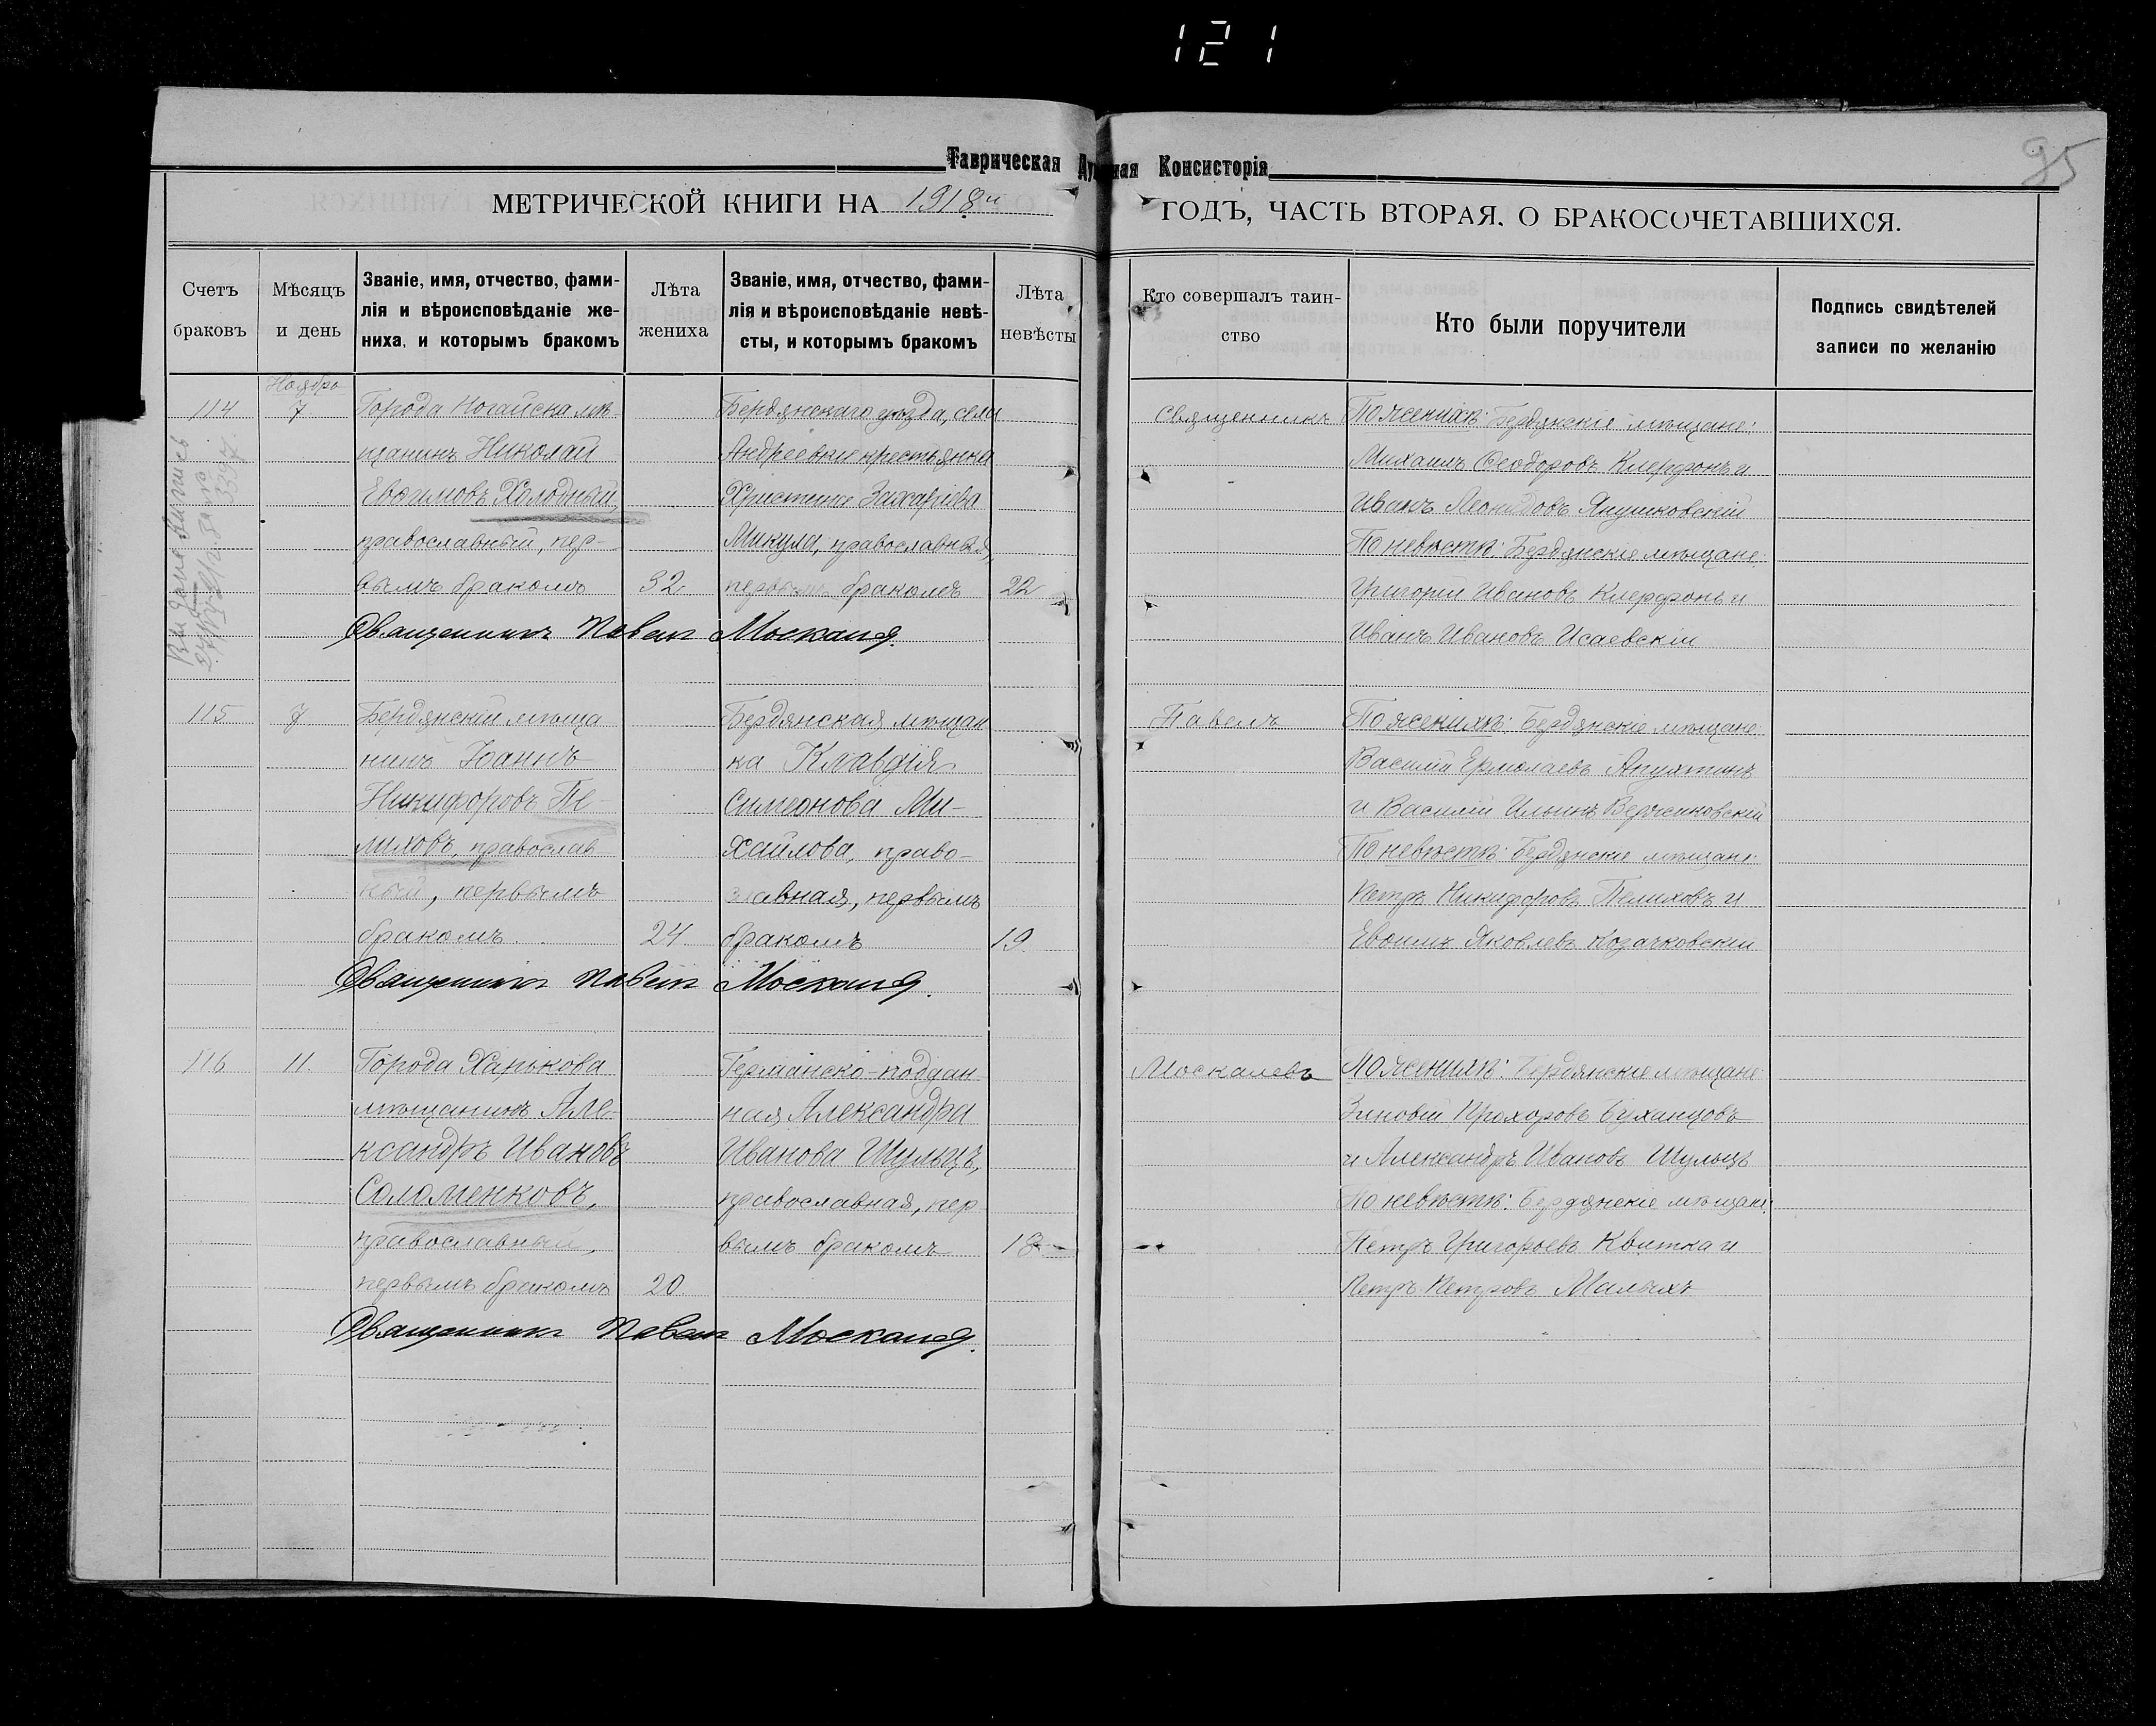 121
95
Таврическая Духовная Консисторія
МЕТРИЧЕСКОЙ КНИГИ НА 1918й ГОДЪ, ЧАСТЬ ВТОРАЯ. О БРАКОСОЧЕТАВШИХСЯ.
Счетъ
браковъ
Мѣсяцъ
и день
Званіе, имя, отчество, фами-
лія и вѣроисповѣданіе же-
ниха, и которымъ бракомъ
Лѣта
жениха
Званіе, имя, отчество, фами-
лія и вѣроисповѣданіе невѣ-
сты, и которымъ бракомъ
Лѣта
невѣсты
Кто совершалъ таин-
ство
Кто были поручители
Подпись свидѣтелей
записи по желанію
Ноябрь
114
7
Города Ногайска мѣ-
щанинъ Николай
Евѳимовъ Холодный,
православный, пер-
вымъ бракомъ
32
Бердянскаго уѣзда, села
Андреевки крестьянка
Христина Захаріева
Микула, православная,
первымъ бракомъ
22
Священникъ
По женихѣ: Бердянскіе мѣщане:
Михаилъ Ѳеодоровъ и
Иванъ Леонидовъ Янушковскій
По невѣстѣ: Бердянскіе мѣщане:
Григорій Ивановъ и
Иванъ Ивановъ Исаевскій
Священникъ Павелъ Москалев.
115
7
Бердянскій мѣща
нинъ Іоаннъ
Никифоровъ Пе-
лиховъ, православ
ный, первымъ
бракомъ
24
Бердянская мѣщан
ка Клавдія
Симеонова Ми-
хайлова, право-
славная, первымъ
бракомъ
19
Павелъ
По женихѣ: Бердянскіе мѣщане:
Василій Ермолаевъ Апухтинъ
и Василій Ильинъ
По невѣстѣ: Бердянскіе мѣщане:
Петръ Никифоровъ Пелиховъ и
Евѳимъ Яковлевъ Козачковскій
Священникъ Павелъ Москалев.
116
11.
Города Харькова
мѣщанинъ Але-
ксандръ Ивановъ
Соломенковъ,
православный,
первымъ бракомъ
20
Германско-поддан-
ная Александра
Иванова Шульцъ,
православная, пер
вымъ бракомъ
18
Москалевъ
По женихѣ: Бердянскіе мѣщане:
Зиновій Прохоровъ Буханцовъ
и Александръ Ивановъ Шульцъ
По невѣстѣ: Бердянскіе мѣщане:
Петръ Григорьевъ Квитка и
Петръ Петровъ Малыхъ
Священникъ Павелъ Москалев.